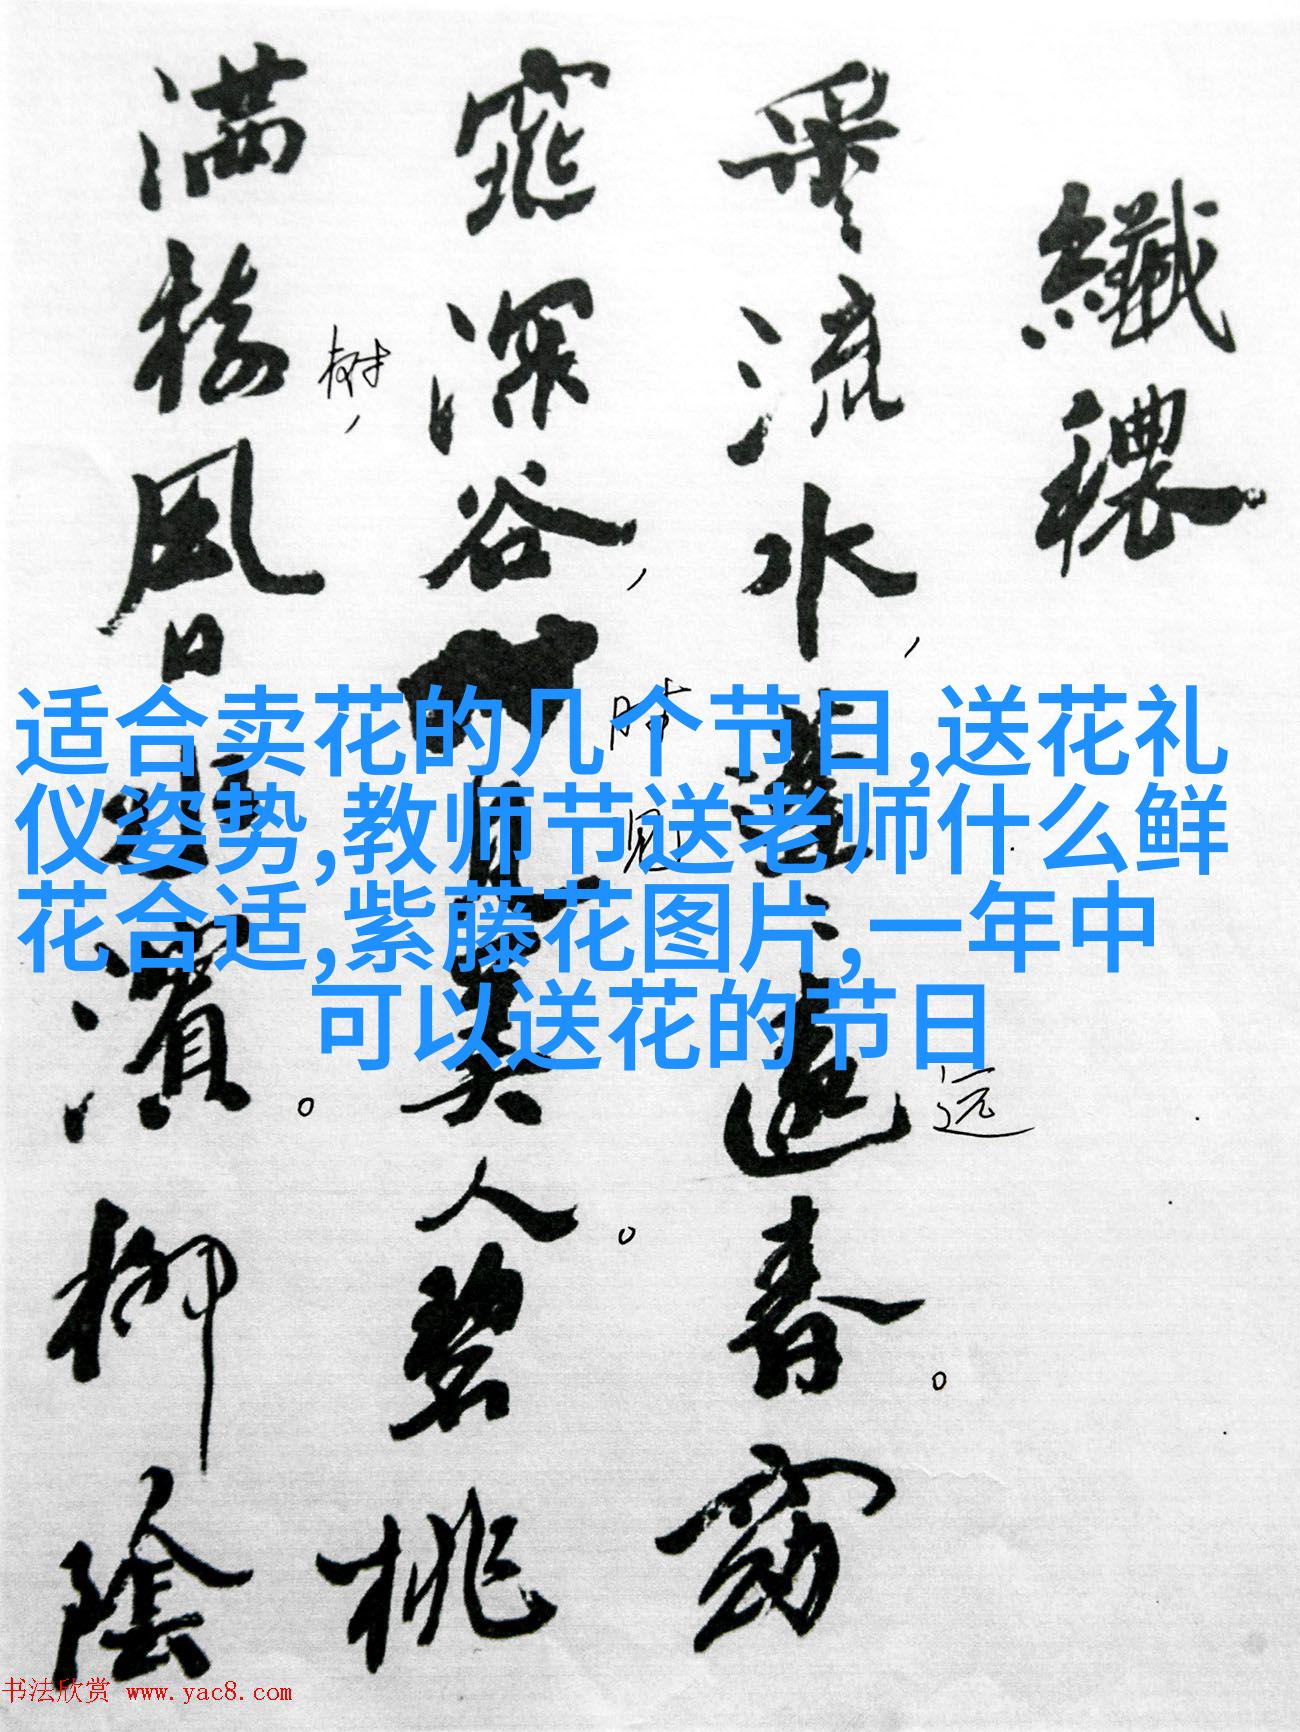 纖穠
采流水，蓬蓬遠春。窈
窕深谷，時見美人。碧桃
满樹風日水濱。柳陰
树，
时
见
远
适合卖花的几个节日,送花礼
仪姿势,教师节送老师什么鲜
花合适,紫藤花图片,一年中
可以送花的节日
书法欣赏 www.yac8.com